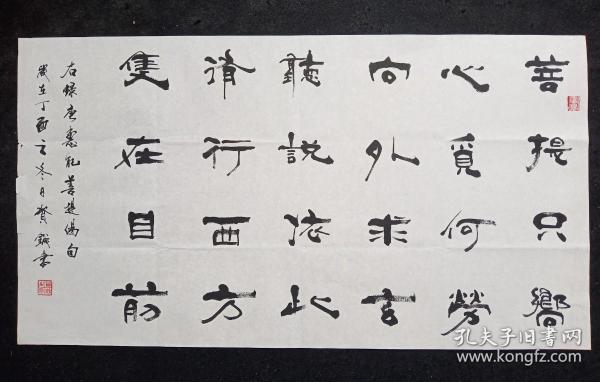 菩提只嚮
心覓何勞
向外求玄
聽說依此
修行西方
隻在目前
右錄唐惠能菩提偈句
歲在丁酉之冬日書
孔夫子旧书网
www.kongfz.com